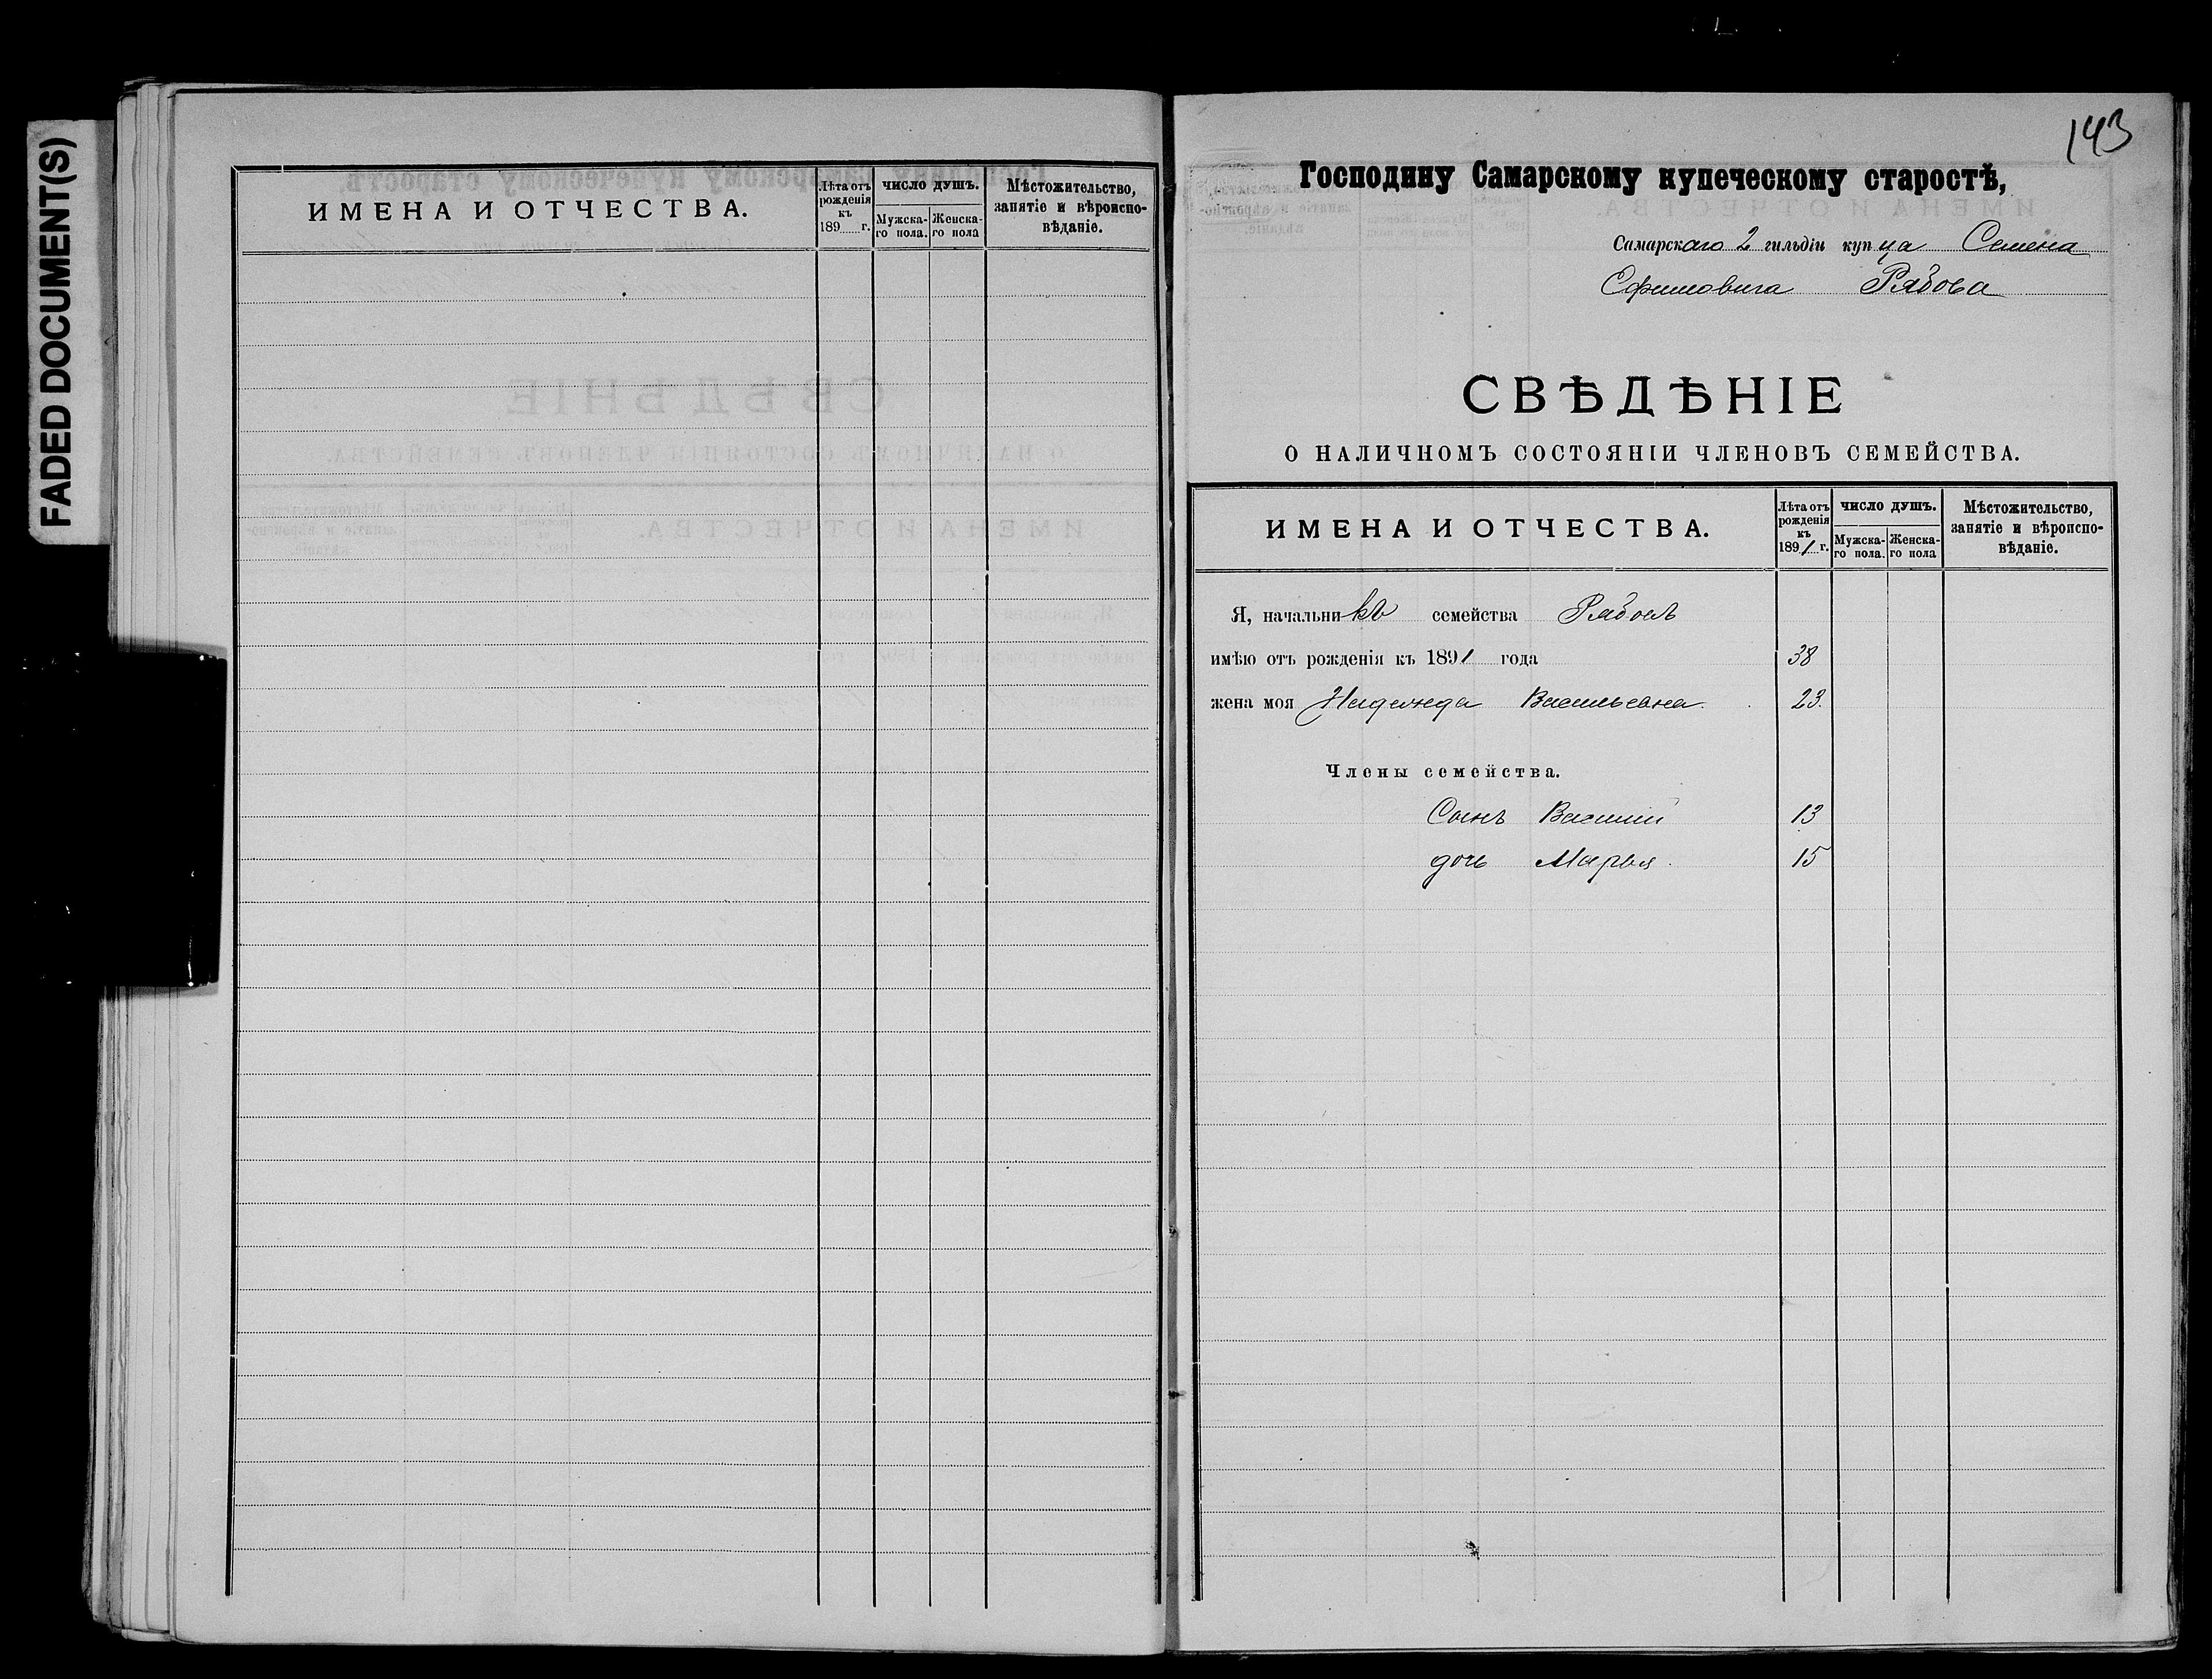 FADED DOCUMENT(S)
ИМЕНА И ОТЧЕСТВА.
Лѣта отъ рожденія къ 189 г.
ЧИСЛО ДУШЪ.
Мужска-го пола.
Женска-го пола
Мѣстожительство,
занятіе и вѣроиспо-
вѣданіе.
143
Господину Самарскому купеческому старостѣ,
Самарскаго 2 гильдіи купца Семена
Ефимовича Рябова
СВѢДѢНІЕ
О НАЛИЧНОМЪ СОСТОЯНІИ ЧЛЕНОВЪ СЕМЕЙСТВА.
ИМЕНА И ОТЧЕСТВА.
Лѣта отъ рожденія къ 1891 г.
ЧИСЛО ДУШЪ.
Мужска-го пола.
Женска-го пола
Мѣстожительство,
занятіе и вѣроиспо-
вѣданіе.
Я, начальникъ семейства Рябовъ
имѣю отъ рожденія къ 1891 года 38
жена моя Надежда Васильевна. 23.
Члены семейства.
Сынъ Василій 13
дочь Марья. 15